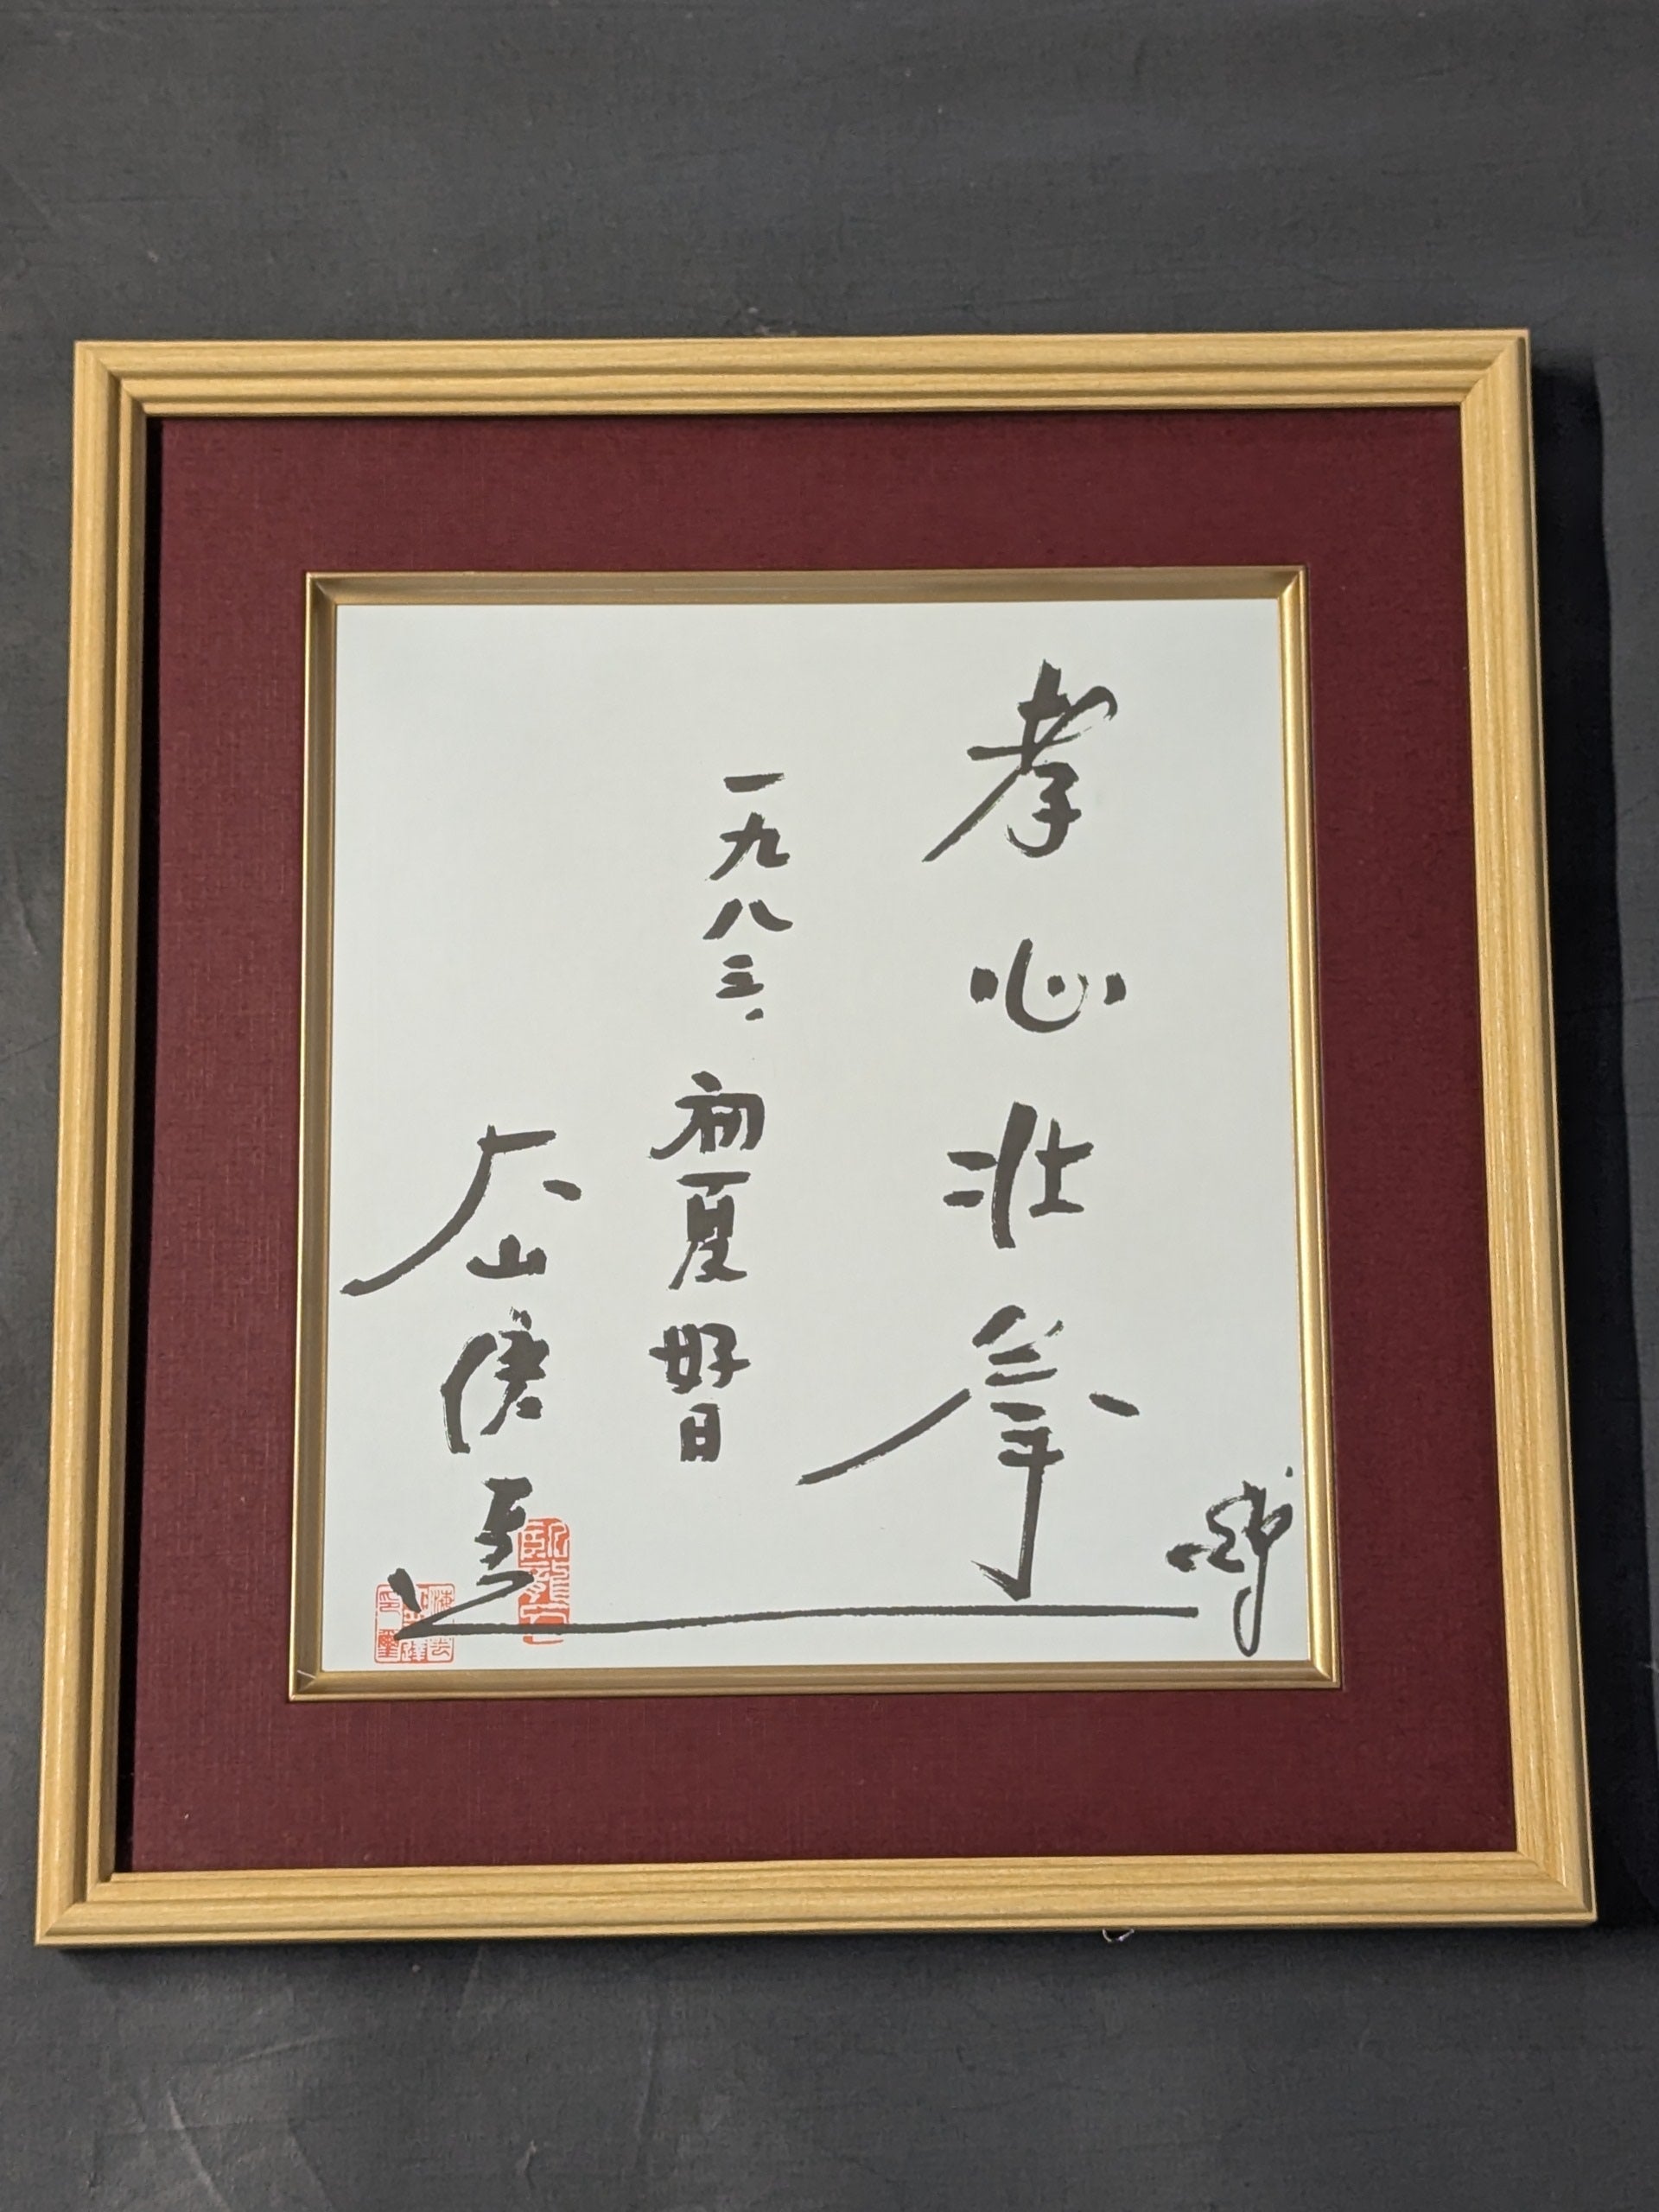 孝心壮拳
一九八三、初夏 好日
大山倍達